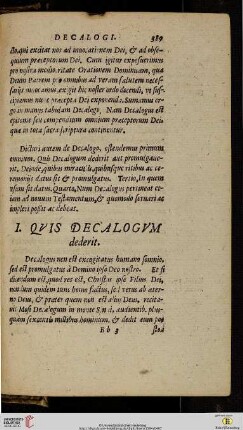 DECALOGI. 389
ctio, qui excitat nos ad invocationem Dei, & ad obse-
quium præceptorum Dei. Cum igitur exposuerimus
pro nostra modio ritate Orationem Dominicam, qua
Deum Patrem pro omnibus ad veram salutem neces-
sarijs invocamus, exigit hic noster ordo docendi, ut su-
scipiamus nunc præcepta Dei exponenda. Sumamus er-
go in manus tabulam Decalogi. Nam Decalogus est
epitome seu compendium omnium præceptorum Dei,
quæ in tota sacra scriptura continentur.
Dicturi autem de Decalogo, ostendemus primum
omnium, Quis Decalogum dederit aut promulgave-
rit, Deinde, quibus miraculis, quibusque ritibus ac ce-
remonijs datus sit & promulgatus. Tertio, In quem
usum sit datus. Quarto, Num Decalogus pertineat eti-
am ad novum Testamentum, & quomodo servari ac
impleri possit ac debeat.
I. QVIS DECALOGVM
dederit.
Decalogus non est excogitatus humano somnio,
sed est promulgatus à Domino ipso Deo nostro. Et si
dicendum est, quod res est, Christus ipse Filius Dei,
non dum quidem tum homo factus, sed verus ab æter-
no Deus, & præter quem non est alius Deus, recita-
vit Mosi Decalogum in monte Sinai, audientibus plus-
quam sexcentis millibus hominum, & dedit eum po-
Bb 3 stea